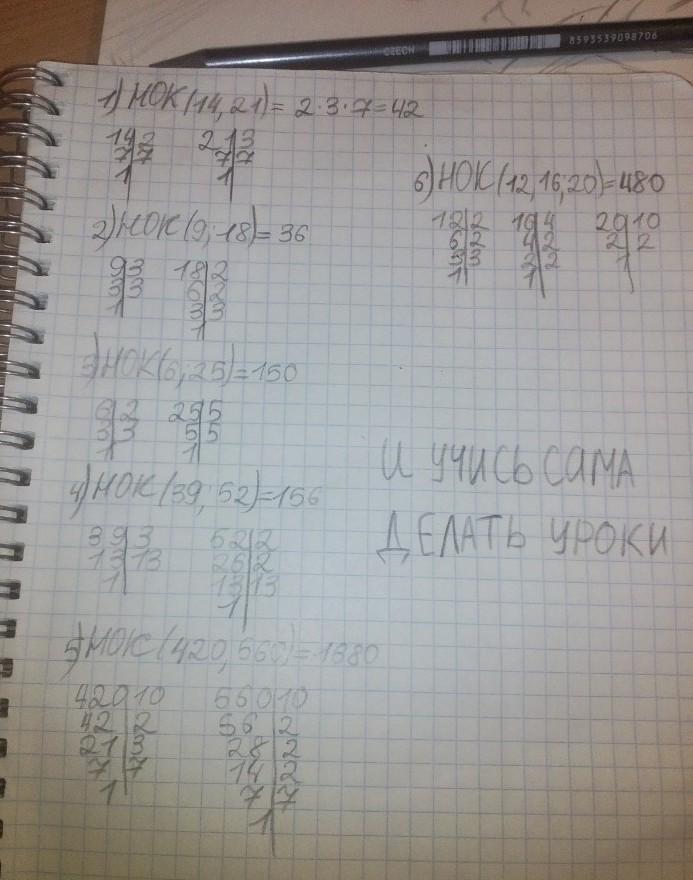 CZECH 8593539098706
1) НОК(14,21)= 2·3·7=42
14 2 21 3
7 7 7 7
1 1
2) НОК(9; 18)= 36
9 3 18 2
3 3 6 2
1 3 3
1
3) НОК(6; 25)=150
6 2 25 5
3 3 5 5
1 1
4) НОК(39; 52)=156
39 3 52 2
13 13 26 2
1 13 13
1
5) НОК(420, 560)=1380
420 10 560 10
42 2 56 2
21 3 28 2
7 7 14 2
1 7 7
1
6) НОК(12,16,20)=480
12 2 16 4 20 10
6 2 4 2 2 2
3 3 2 2 1
1 1
И УЧИСЬ САМА
ДЕЛАТЬ УРОКИ